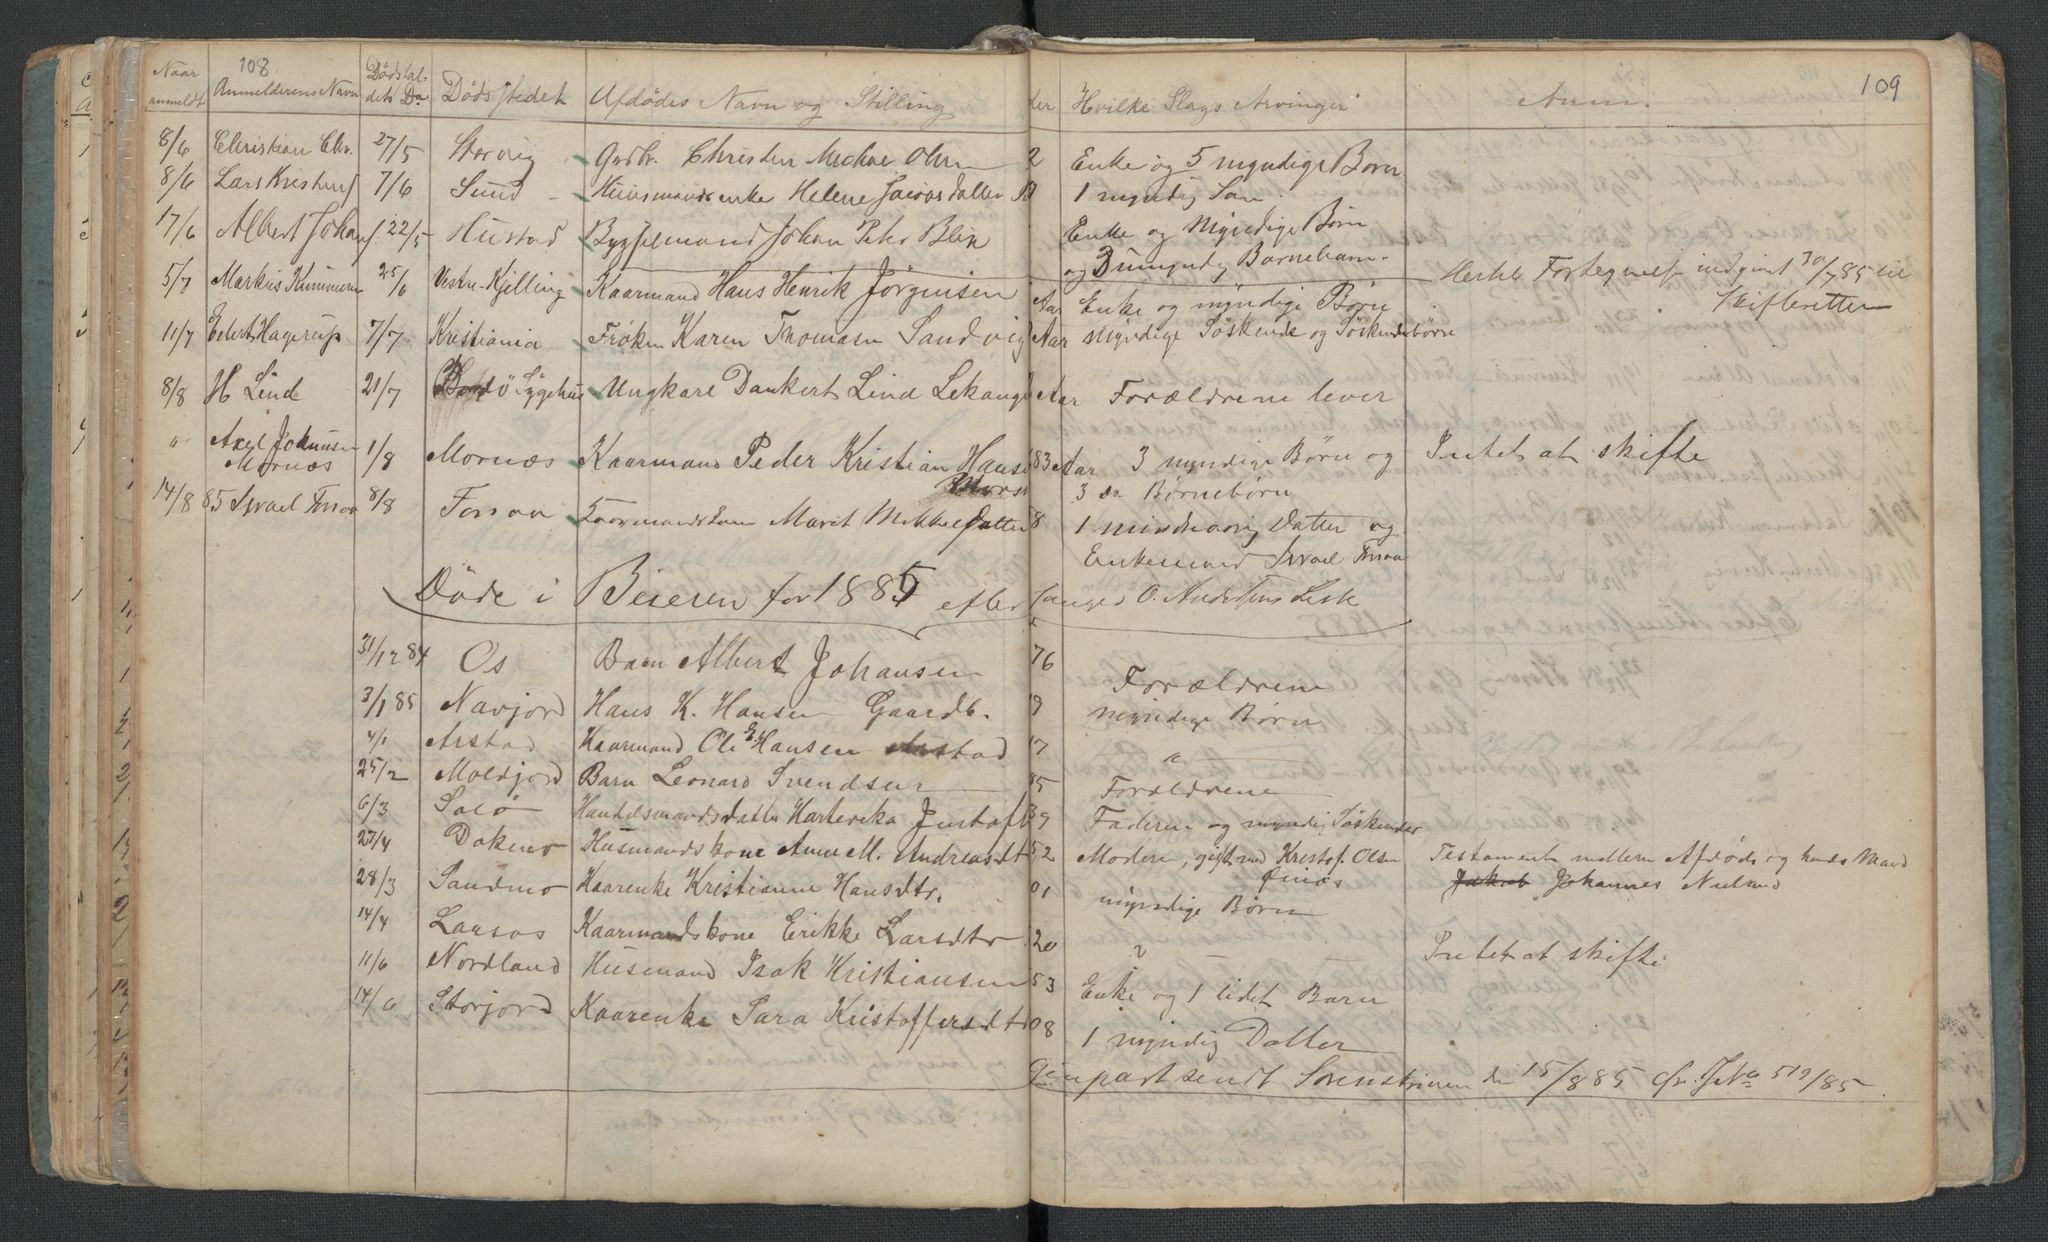 108
109
Naar anmeldt Anmelderens Navn Dødsfaldets Da Dødsstedet Afdødes Navn og Stilling der Hvilke Slags Arvinger Anm.
8/6 Christian Chr. 27/5 Storvig Grdbr. Christen Michael Olsen 2 Enke og 5 myndige Børn
8/6 Lars Kristens 7/6 Sund Huusmandsenke Helene Jacobsdatter 1 myndig Søn.
17/6 Albert Johan 22/5 Hustad Bygselmand Johan Peter Blix Enke og Myndige Børn
og 3 umyndig Børnebørn.
5/7 Markus 25/6 Vestre-Kjelling Kaarmand Hans Henrik Jörgensen Aar Enke og myndige Börn Fortegnelse indgivet 30/7 85 til
Skifteretten
11/7 Edert Hagerup 7/7 Kristiania Fröken Karen Thomasen Sandvig Aar myndige Söskende og Söskendebörn
8/8 H Lind 21/7 Bodö Sygehus Ungkarl Dankert Lind Lekang Aar Forældrene lever
" Axel Johnsen 1/8 Mornæs Kaarmand Peder Kristian Hans 83 Aar 3 myndige Børn og Intet at skifte
Mornæs 3 do Børnebørn
14/8 85 Israel 8/8 Kaarmandskone Marit Mikkelsdatter 8 1 mindreaarig Datter og
Enkemand Israel
Döde i Beieren for 1885 efter
31/12 84 Os Barn Albert Johansen 76 Forældrene
3/1 85 Navjord Hans K. Hansen Gaardb. 9 myndige Börn
4/1 Arstad Kaarmand Ole E. Hansen Arstad 17 "
25/2 Moldjord Barn Leonard Svendsen 85 Forældrene
6/3 Soló Handelsmandsdatter Harterika Justofs 39 Faderen og myndig Söskender
27/4 Dokmo Husmandskone Anne M. Andreasdt 52 Moderen, gift med Kristof. Olsen Testament mellem Afdøde og hendes Mand
28/3 Sandmo Kaarenke Kristianne Hansdtr. 01 myndige Börn Jakob Johannes
14/4 Larsos Kaarmandskone Erikke Larsdtr 20 " Intet at skifte
11/6 Nordland Husmand Isak Kristiansen 53 Enke og 1 lidet Barn
14/6 Storjord Kaarenke Sara Kristoffersdtr 08 1 myndig Datter
Gjenpart sendt Sorenskriveren den 15/8 85 cfr. 519/85